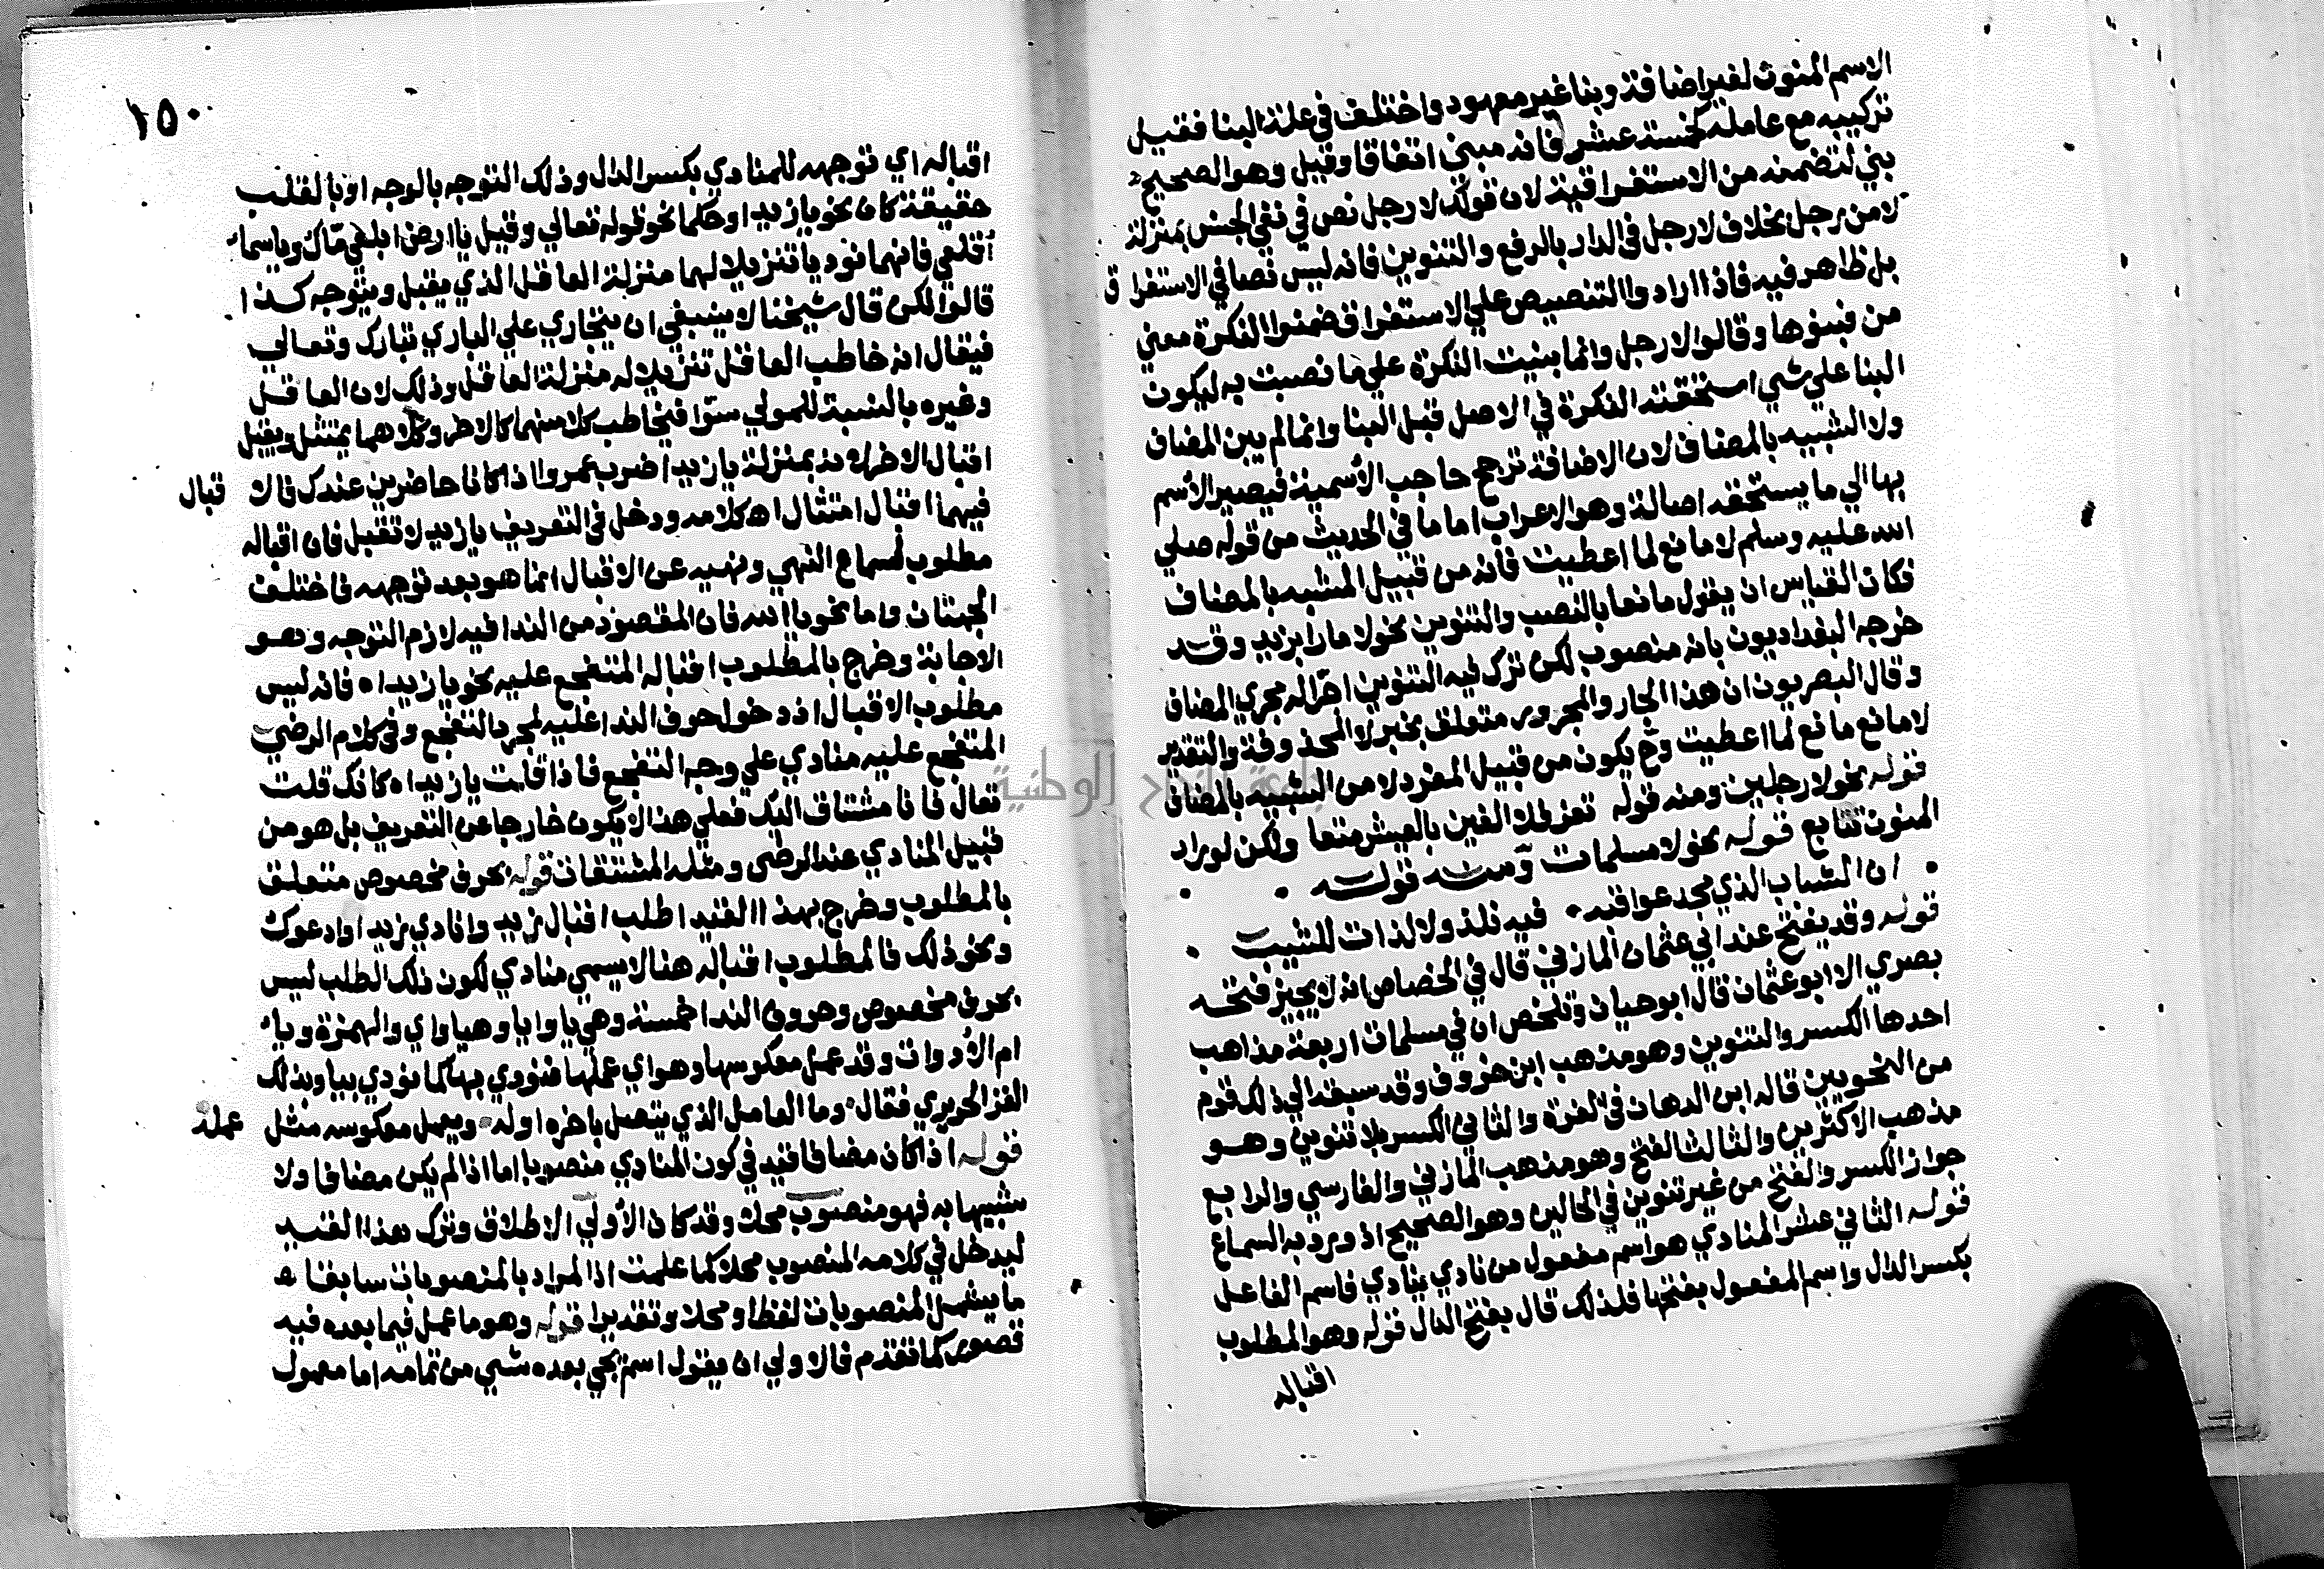 الاسم المنون لغير اضافة وبنا غير معهود واختلف في علة البنا فقيل
تركيبه مع عامله كخمسة عشر فانه مبني اتفاقا وقيل وهو الصحيح
بني لتضمنه من الاستغراقية لان قولك لا رجل نص في نفي الجنس بمنزلة
لا من رجل بخلاف لا رجل في الدار بالرفع والتنوين فانه ليس نصا في الاستغراق
بل ظاهر فيه فاذا ارادوا التنصيص علي الاستغراق ضمنوا النكرة معني
من فبنوها وقالوا لا رجل وانما بنيت النكرة علي ما نصبت به ليكون
البنا علي شي استحقته النكرة في الاصل قبل البنا وانما لم يبن المضاف
ولا الشبيه بالمضاف لان الاضافة ترجح جانب الأسمية فيصير الأسم
بها الي ما يستحقه اصالة وهو الاعراب اما ما في الحديث من قوله صلي
الله عليه وسلم لا مانع لما اعطيت فانه من قبيل المشبه بالمضاف
فكان القياس ان يقول مانعا بالنصب والتنوين نحو لا مارا بزيد وقد
خرجه البغداديون بانه منصوب لكن ترك فيه التنوين اجراله مجري المضاف
وقال البصريون ان هذا الجار والمجرور متعلق بخبر لا المحذوفة والتقدير
لا مانع مانع لما اعطيت وح يكون من قبيل المفرد لا من الشبيه بالمضاف
قوله نحو لا رجلين ومنه قوله تعز فلا الفين بالعيش متعا ولكن لوراد
المنون تتابع قوله نحو لا مسلمات ومنه قوله
ان الشباب الذي مجد عواقبه فيه نلذ ولا لذات للشيب
قوله وقد يفتح عند ابي عثمان المازني قال في الخصائص انه لا يجيز فتحه
بصري الا ابو عثمان قال ابو حيان وتلخص ان في مسلمات اربعة مذاهب
احدها الكسر والتنوين وهو مذهب ابن خروف وقد سبقه الي ذلك قوم
من النحويين قاله ابن الدهان في الغرة والثاني الكسر بلا تنوين وهو
مذهب الاكثرين والثالث الفتح وهو مذهب المازني والفارسي والرابع
جواز الكسر والفتح من غير تنوين في الحالين وهو الصحيح اذ ورد به السماع
قوله الثاني عشر المنادي هو اسم مفعول من نادي ينادي فاسم الفاعل
بكسر الدال واسم المفعول بفتحها فلذلك قال بفتح الدال قوله وهو المطلوب
اقباله
١٥٠
اقباله اي توجهه للمنادي بكسر الدال وذلك التوجه بالوجه او بالقلب
حقيقة كان نحو يا زيد او حكما نحو قوله تعالي وقيل يا ارض ابلعي ماك ويا سماء
أقلعي فانهما نوديا تنزيلا لهما منزلة العاقل الذي يقبل ويتوجه كذا
قالوا لكن قال شيخنا لا ينبغي ان يتجاري علي الباري تبارك وتعالي
فيقال انه خاطب العاقل تنزيلا له منزلة العاقل وذلك لان العاقل
وغيره بالنسبة للمولي سوا فيخاطب كلا منهما كالاخر وكلاهما يمتثل ويقبل
اقبال الاخر لانه بمنزلة يا زيد اضرب عمروا اذا كانا حاضرين عندك فالا قبال
فيهما اقبال امتثال اه كلامه ودخل في التعريف يا زيد لا تقبل فان اقباله
مطلوب لسماع النهي ونهيه عن الاقبال انما هو بعد توجهه فاختلف
الجهتان واما نحو يا الله فان المقصود من الندا فيه لازم التوجه وهو
الاجابة وخرج بالمطلوب اقباله المتفجع عليه نحو يا زيداه فانه ليس
مطلوب الاقبال اذ دخول حرف الندا عليه لمجرد التفجع وفي كلام الرضي
المتفجع عليه منادي علي وجه التفجع فاذا قلت يا زيداه كانك قلت
تعال فانا مشتاق اليك فعلي هذا لا يكون خارجا عن التعريف بل هو من
قبيل المنادي عند الرضي ومثله المستغاث قوله بحرف مخصوص متعلق
بالمطلوب وخرج بهذا القيد اطلب اقبال زيد وانادي زيدا وادعوك
ونحو ذلك فالمطلوب اقباله هنا لا يسمي منادي لكون ذلك الطلب ليس
بحرف مخصوص وحروف الندا خمسة وهي يا وايا وهيا واي والهمزة ويا
ام الأدوات وقد عمل معكوسها وهو اي عملها فنودي بها كما نودي بيا وبذلك
الغز الحريري فقال وما العامل الذي يتصل باخره اوله ويعمل معكوسه مثل عمله
قوله اذا كان مضافا قيد في كون المنادي منصوبا اما اذا لم يكن مضافا ولا
شبيها به فهو منصوب محلا وقد كان الأولي الاطلاق وترك هذا القيد
ليدخل في كلامه المنصوب محلا كما علمت اذ المراد بالمنصوبات سابقا
ما يشمل المنصوبات لفظا ومحلا وتقديرا قوله وهو ما عمل فيما بعده فيه
قصور كما تقدم فالاولي ان يقول اسم يجي بعده شي من تمامه اما معمول
جامعة النجاح الوطنية